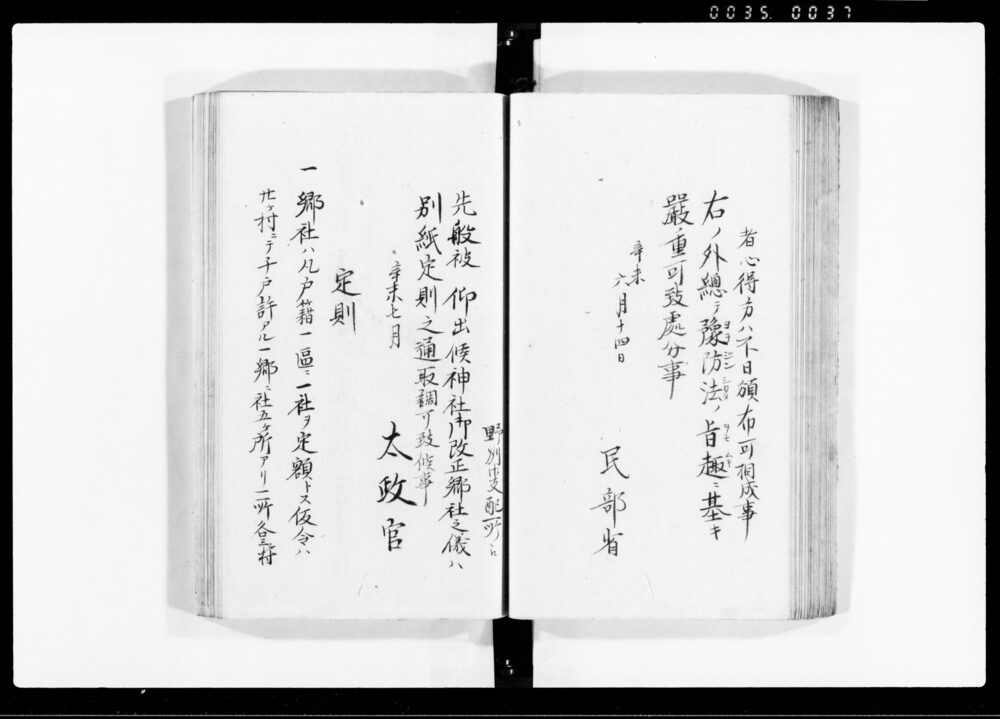 0035. 0037
者心得方ハ不日頒布可相成事
右ノ外總テ豫防法ノ旨趣ニ基キ
嚴重可致處分事
辛未
六月十四日
民部省
先般被 仰出候神社御改正郷社之儀ハ
別紙定則之通取調可致候事
辛未七月
太政官
定則
一郷社ハ凡戸籍一區ニ一社ヲ定額トス仮令ハ
廿ヶ村ニテ千戸許アル一郷ニ社五ヶ所アリ一所各三ヶ村